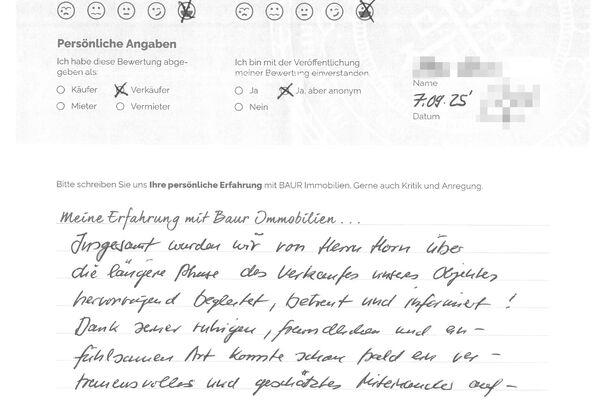 Persönliche Angaben
Ich habe diese Bewertung abge-
geben als:
Käufer
Verkäufer
Mieter
Vermieter
Ich bin mit der Veröffentlichung
meiner Bewertung einverstanden.
Ja
Ja, aber anonym
Nein
Name
7.09.25'
Datum
Bitte schreiben Sie uns Ihre persönliche Erfahrung mit BAUR Immobilien. Gerne auch Kritik und Anregung.
Meine Erfahrung mit Baur Immobilien...
Insgesamt wurden wir von Herrn Horn über
die längere Phase des Verkaufes unseres Objektes
hervorragend begleitet, betreut und informiert!
Dank seiner ruhigen, freundlichen und ein-
fühlsamen Art konnte schon bald ein ver-
trauensvolles und geschätztes Miteinander auf-